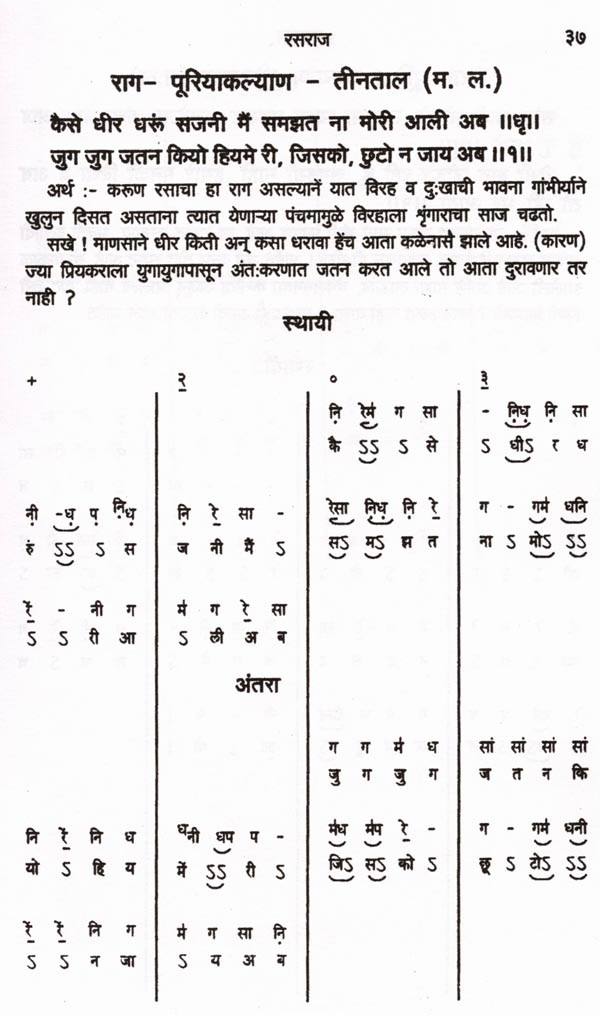 रसराज ३७
राग- पूरियाकल्याण - तीनताल (म. ल.)
कैसे धीर धरूं सजनी मैं समझत ना मोरी आली अब ॥धृ॥
जुग जुग जतन कियो हियमे री, जिसको, छुटो न जाय अब ॥१॥
अर्थ :- करूण रसाचा हा राग असल्यानें यात विरह व दुःखाची भावना गांभीर्याने
खुलुन दिसत असताना त्यात येणाऱ्या पंचमामुळे विरहाला शृंगाराचा साज चढतो.
सखे ! माणसाने धीर किती अन् कसा धरावा हेंच आता कळेनासे झाले आहे. (कारण)
ज्या प्रियकराला युगायुगापासून अंतःकरणात जतन करत आले तो आता दुरावणार तर
नाही ?
स्थायी
+ २ ० ३
नि़ रे॒म॑ ग सा - नि़ध़ नि़ सा
कै ऽऽ ऽ से ऽ धीऽ र ध
नी़ -ध़ प़ नि़ध़ नि़ रे॒ सा - रे॒सा नि़ध़ नि़ रे॒ ग - गम॑ धनि
रुं ऽऽ ऽ स ज नी मैं ऽ सऽ मऽ झ त ना ऽ मोऽ ऽऽ
रें॒ - नी ग म॑ ग रे॒ सा
ऽ ऽ री आ ऽ ली अ ब
अंतरा
ग ग म॑ ध सां सां सां सां
जु ग जु ग ज त न कि
नि रें॒ नि ध धनी धप प - म॑ध म॑प रे॒ - ग - गम॑ धनी
यो ऽ हि य में ऽऽ री ऽ जिऽ सऽ को ऽ छू ऽ टोऽ ऽऽ
रें॒ रें॒ नि ग म॑ ग सा नि़
ऽ ऽ न जा ऽ य अ ब